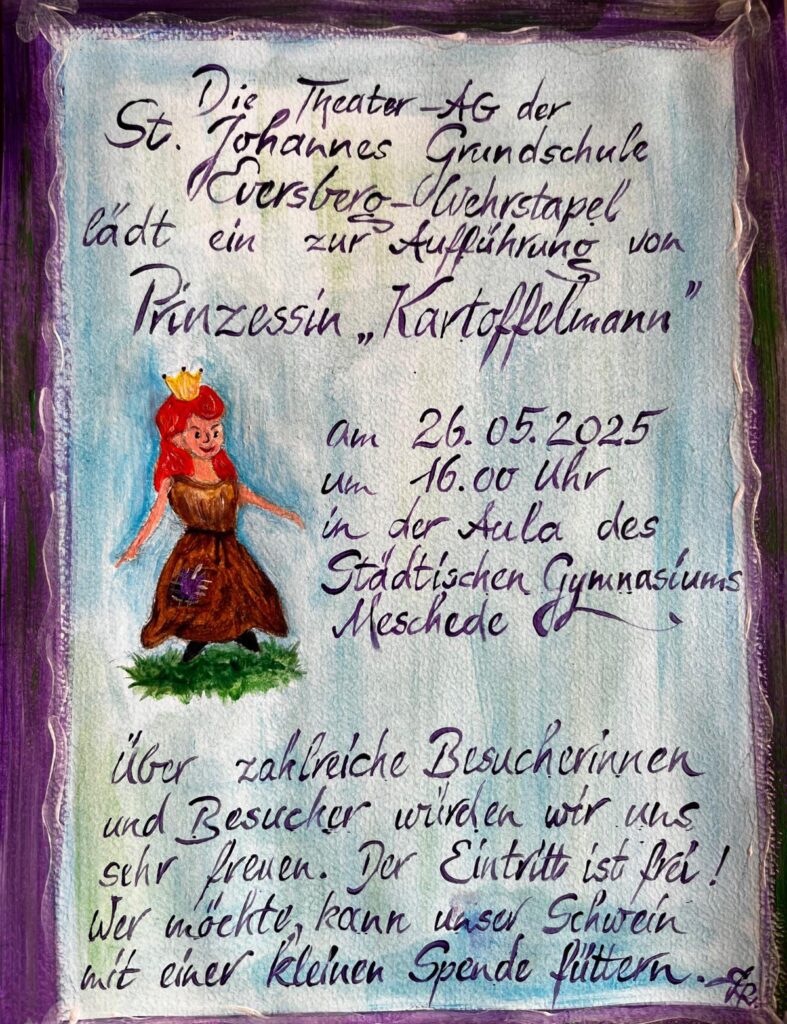 Die Theater-AG der
St. Johannes Grundschule
"Eversberg-Wehrstapel"
lädt ein zur Aufführung von
Prinzessin „Kartoffelmann"
am 26.05.2025
um 16.00 Uhr
in der Aula des
Städtischen Gymnasiums
Meschede
Über zahlreiche Besucherinnen
und Besucher würden wir uns
sehr freuen. Der Eintritt ist frei!
Wer möchte, kann unser Schwein
mit einer kleinen Spende füttern.